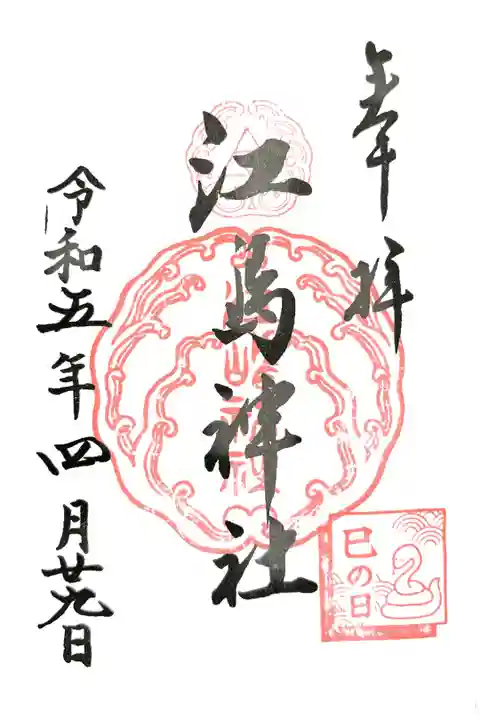 奉拝
江島神社
令和五年四月廿九日
巳の日